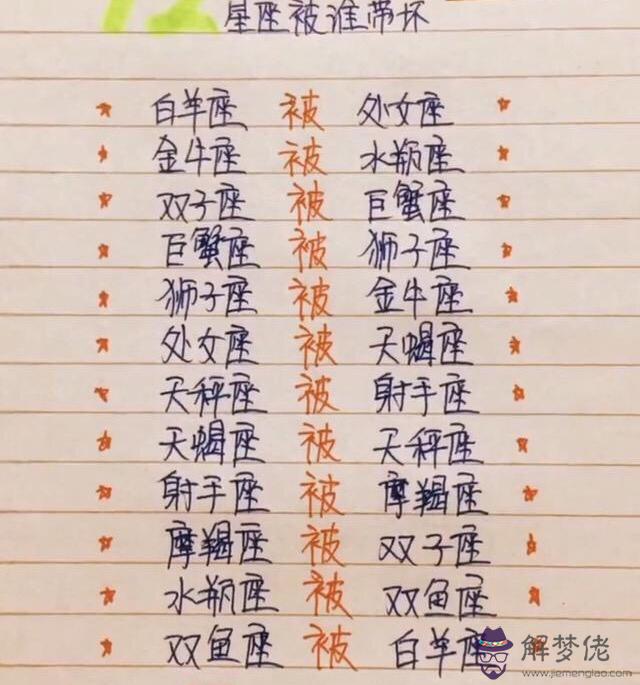 12星座被谁带坏
白羊座 被 处女座
金牛座 被 水瓶座
双子座 被 巨蟹座
巨蟹座 被 狮子座
狮子座 被 金牛座
处女座 被 天蝎座
天秤座 被 射手座
天蝎座 被 天秤座
射手座 被 摩羯座
摩羯座 被 双子座
水瓶座 被 双鱼座
双鱼座 被 白羊座
解梦佬
www.jiemenglao.com